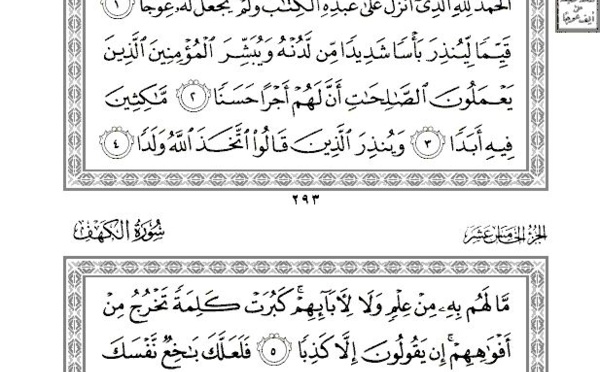 الْحَمْدُ لِلَّهِ الَّذِي أَنزَلَ عَلَىٰ عَبْدِهِ الْكِتَابَ وَلَمْ يَجْعَل لَّهُ عِوَجًا ١
قَيِّمًا لِّيُنذِرَ بَأْسًا شَدِيدًا مِّن لَّدُنْهُ وَيُبَشِّرَ الْمُؤْمِنِينَ الَّذِينَ
يَعْمَلُونَ الصَّالِحَاتِ أَنَّ لَهُمْ أَجْرًا حَسَنًا ٢ مَّاكِثِينَ
فِيهِ أَبَدًا ٣ وَيُنذِرَ الَّذِينَ قَالُوا اتَّخَذَ اللَّهُ وَلَدًا ٤
٢٩٣
الجزء الخامس عشر
سورة الكهف
مَّا لَهُم بِهِ مِنْ عِلْمٍ وَلَا لِآبَائِهِمْ ۚ كَبُرَتْ كَلِمَةً تَخْرُجُ مِنْ
أَفْوَاهِهِمْ ۚ إِن يَقُولُونَ إِلَّا كَذِبًا ٥ فَلَعَلَّكَ بَاخِعٌ نَّفْسَكَ